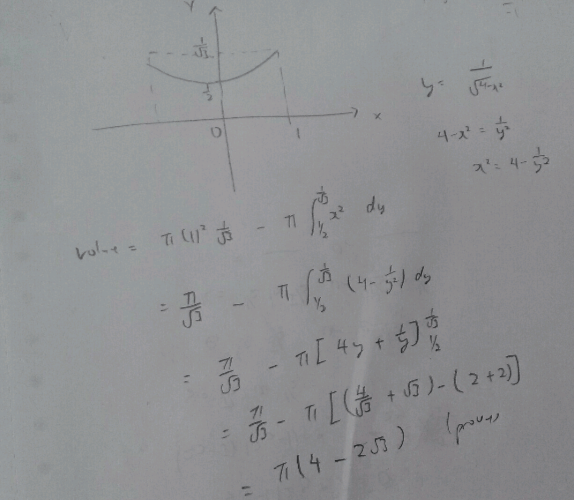 y
1/√3
1/2
0 1 x
y = 1/√(4-x²)
4-x² = 1/y²
x² = 4 - 1/y²
= π(1)² 1/√3 - π ∫_{1/2}^{1/√3} x² dy
= π/√3 - π ∫_{1/2}^{1/√3} (4 - 1/y²) dy
= π/√3 - π [4y + 1/y]_{1/2}^{1/√3}
= π/√3 - π [(4/√3 + √3) - (2+2)]
= π(4 - 2√3)